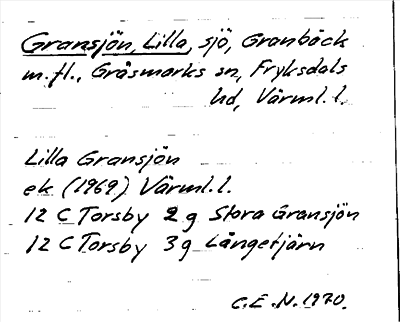 Gransjön, Lilla, sjö, Granbäck
m.fl., Gräsmarks sn, Fryksdals
hd, Värml. l.
Lilla Gransjön
ek (1969) Värml. l.
12 C Torsby 2 g Stora Gransjön
12 C Torsby 3 g Långetjärn
C.E.N. 1970.